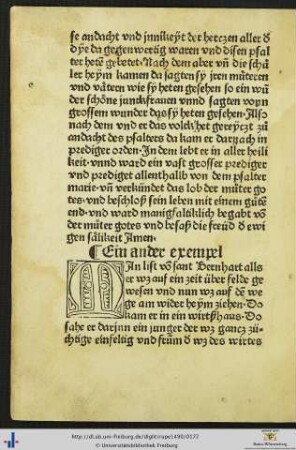 se andacht vnd jnnikeyt der herczen aller d
dye da gegenwertig waren vnd disen psal
ter hetẽ gebetet· Nach dem aber vñ die schů
ler heym kamen da sagten sy jren můteren
vnd våteren wie sy heten gesehen so ein wũ
der schöne junckfrauen vnnd sagten vonn
grossem wunder dzs sy heten gesehen· Also
nach dem vnd er das volck het gereyczt zů
andacht des psalters da kam er darnach in
prediger orden· In dem lebt er in aller heili
keit· vnnd ward ein vast grosser prediger
vnd prediget allenthalb von dem psalter
marie· vñ verkündet das lob der můter go
tes· vnd beschloß sein leben mit einem gůtẽ
end· vnd ward manigfaltiklich begabt võ
der můter gotes vnd besaß die freüd d ewi
gen sålikeit Amen·
¶ Ein ander exempel
MAn list võ sant Bernhart alls
er wz auf ein zeit über felde ge
wesen vnd nun wz auf dẽ we
ge am wider heym ziehen· Do
kam er in ein wirtßhaus· Do
sahe er darjnn ein junger der wz gancz zü
chtige einfeltig vnd frum d wz des wirtes
http://dl.ub.uni-freiburg.de/diglit/rupe1490/0172
© Universitätsbibliothek Freiburg
Baden-Württemberg